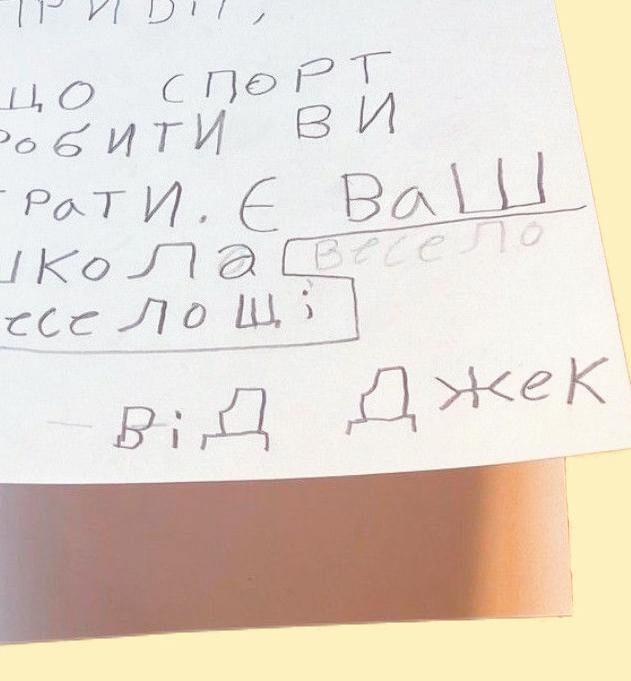 ПРИВІТ,
ЩО СПОРТ
РОБИТИ ВИ
ГРАТИ. Є ВаШ
ШКОЛа весело
веселощі
ВіД ДжеК